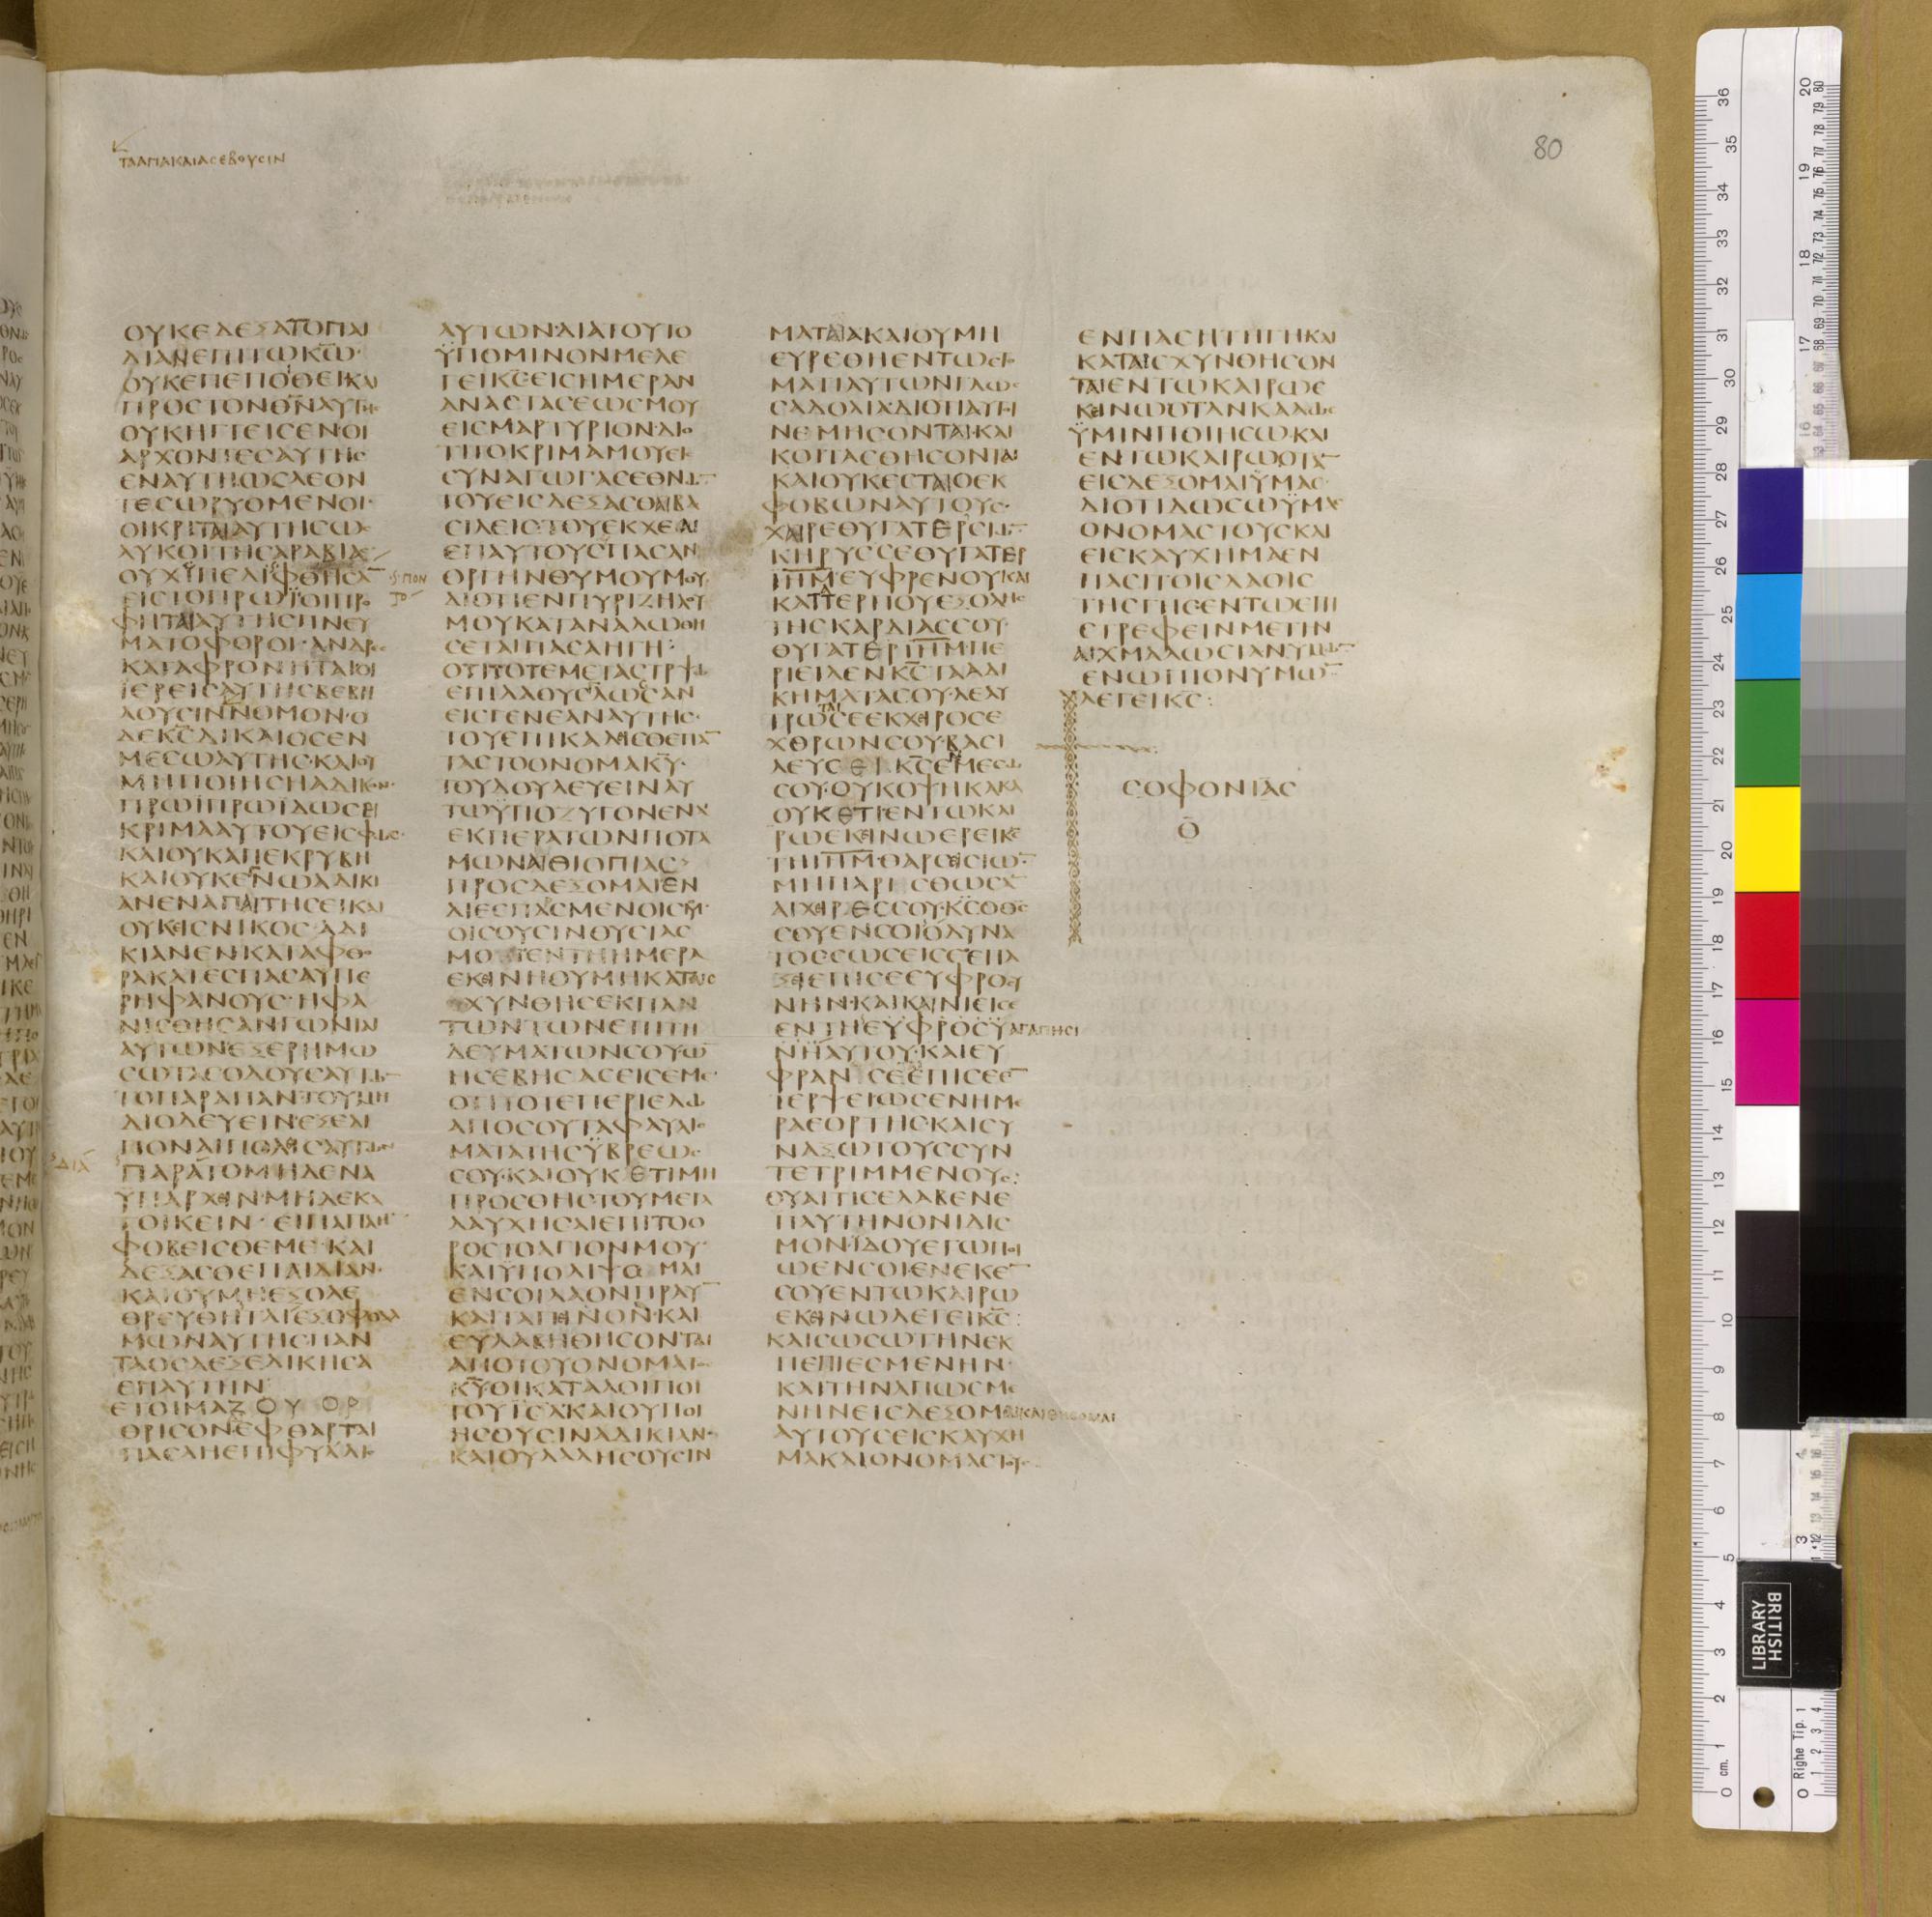 ΤΑΑΓΙΑΚΑΙΑCΕΒΟΥCΙΝ
80
ΟΥΚΕΔΕΞΑΤΟΠΑΙ
ΔΙΑΝΕΠΙΤΩΚΩ
ΟΥΚΕΠΕΠΟΙΘΕΙΚΑΙ
ΠΡΟCΤΟΝΘΝΑΥΤΗC
ΟΥΚΗΓΓΕΙCΕΝΟΙ
ΑΡΧΟΝΤΕCΑΥΤΗC
ΕΝΑΥΤΗΩCΛΕΟΝ
ΤΕCΩΡΥΟΜΕΝΟΙ
ΟΙΚΡΙΤΑΙΑΥΤΗCΩC
ΛΥΚΟΙΤΗCΑΡΑΒΙΑC
ΟΥΧΥΠΕΛΙΦΘΗCΑ
ΕΙCΤΟΠΡΩΪΟΙΠΡΟ
ΦΗΤΑΙΑΥΤΗCΠΝΕΥ
ΜΑΤΟΦΟΡΟΙΑΝΔΡΕC
ΚΑΤΑΦΡΟΝΗΤΑΙΟΙ
ΙΕΡΕΙCΑΥΤΗCΒΕΒΗ
ΛΟΥCΙΝΝΟΜΟΝΟ
ΔΕΚCΔΙΚΑΙΟCΕΝ
ΜΕCΩΑΥΤΗCΚΑΙΟΥ
ΜΗΠΟΙΗCΗΑΔΙΚΟΝ
ΠΡΩΙΠΡΩΙΔΩCΕΙ
ΚΡΙΜΑΑΥΤΟΥΕΙCΦΩC
ΚΑΙΟΥΚΑΠΕΚΡΥΒΗ
ΚΑΙΟΥΚΕΓΝΩΑΔΙΚΙ
ΑΝΕΝΑΠΑΙΤΗCΕΙΚΑΙ
ΟΥΚΕΙCΝΙΚΟCΑΔΙ
ΚΙΑΝΕΝΚΑΤΑΦΘΟ
ΡΑΚΑΤΕCΠΑCΑΫΠΕ
ΡΗΦΑΝΟΥCΗΦΑ
ΝΙCΘΗCΑΝΓΩΝΙΑΙ
ΑΥΤΩΝΕΞΕΡΗΜΩ
CΩΤΑCΟΔΟΥCΑΥΤΩΝ
ΤΟΠΑΡΑΠΑΝΤΟΥΜΗ
ΔΙΟΔΕΥΕΙΝΕΞΕΛΙ
ΠΟΝΑΙΠΟΛΕΙCΑΥΤΩΝ
ΠΑΡΑΤΟΜΗΔΕΝΑ
ΥΠΑΡΧΕΙΝΜΗΔΕΚΑ
ΤΟΙΚΕΙΝΕΙΠΑΠΛΗΝ
ΦΟΒΕΙCΘΕΜΕΚΑΙ
ΔΕΞΑCΘΕΠΑΙΔΙΑΝ
ΚΑΙΟΥΜΗΕΞΟΛΕ
ΘΡΕΥΘΗΤΑΙΕΞΟΦΘΑΛ
ΜΩΝΑΥΤΗCΠΑΝ
ΤΑΟCΑΕΞΕΔΙΚΗCΑ
ΕΠΑΥΤΗΝ
ΕΤΟΙΜΑΖΟΥΟΡ
ΘΡΙCΟΝΕΦΘΑΡΤΑΙ
ΠΑCΑΗΕΠΙΦΥΛΛΙC
ΑΥΤΩΝΔΙΑΤΟΥΤΟ
ΫΠΟΜΙΝΟΝΜΕΛΕ
ΓΕΙΚCΕΙCΗΜΕΡΑΝ
ΑΝΑCΤΑCΕΩCΜΟΥ
ΕΙCΜΑΡΤΥΡΙΟΝΔΙΟ
ΤΙΤΟΚΡΙΜΑΜΟΥΕΙC
CΥΝΑΓΩΓΑCΕΘΝΩΝ
ΤΟΥΕΙCΔΕΞΑCΘΑΙΒΑ
CΙΛΕΙCΤΟΥΕΚΧΕΑΙ
ΕΠΑΥΤΟΥCΠΑCΑΝ
ΟΡΓΗΝΘΥΜΟΥΜΟΥ
ΔΙΟΤΙΕΝΠΥΡΙΖΗΛΟΥ
ΜΟΥΚΑΤΑΝΑΛΩΘΗ
CΕΤΑΙΠΑCΑΗΓΗ
ΟΤΙΤΟΤΕΜΕΤΑCΤΡΨΩ
ΕΠΙΛΑΟΥCΓΛΩCCΑΝ
ΕΙCΓΕΝΕΑΝΑΥΤΗC
ΤΟΥΕΠΙΚΑΛΙCΘΕΠΑΝ
ΤΑCΤΟΟΝΟΜΑΚΥ
ΤΟΥΔΟΥΛΕΥΕΙΝΑΥ
ΤΩΫΠΟΖΥΓΟΝΕΝΑ
ΕΚΠΕΡΑΤΩΝΠΟΤΑ
ΜΩΝΑΙΘΙΟΠΙΑC
ΠΡΟCΔΕΞΟΜΑΙΕΝ
ΔΙΕCΠΑCΜΕΝΟΙCΜ
ΟΙCΟΥCΙΝΘΥCΙΑC
ΜΟΙΕΝΤΗΗΜΕΡΑ
ΕΚΕΙΝΗΟΥΜΗΚΑΤΑΙC
ΧΥΝΘΗCΕΚΠΑΝ
ΤΩΝΤΩΝΕΠΙΤΗ
ΔΕΥΜΑΤΩΝCΟΥΩΝ
ΗCΕΒΗCΑCΕΙCΕΜΕ
ΟΤΙΤΟΤΕΠΕΡΙΕΛΩ
ΑΠΟCΟΥΤΑΦΑΥΛΙC
ΜΑΤΑΤΗCΫΒΡΕΩC
CΟΥΚΑΙΟΥΚΕΤΙΜΗ
ΠΡΟCΘΗCΤΟΥΜΕΓΑ
ΛΑΥΧΗCΑΙΕΠΙΤΟΟ
ΡΟCΤΟΑΓΙΟΝΜΟΥ
ΚΑΙΫΠΟΛΙΨΟΜΑΙ
ΕΝCΟΙΛΑΟΝΠΡΑΥΝ
ΚΑΙΤΑΠΕΙΝΟΝΚΑΙ
ΕΥΛΑΒΗΘΗCΟΝΤΑΙ
ΑΠΟΤΟΥΟΝΟΜΑΤΟC
ΚΥΟΙΚΑΤΑΛΟΙΠΟΙ
ΤΟΥΙCΛΚΑΙΟΥΠΟΙ
ΗCΟΥCΙΝΑΔΙΚΙΑΝ
ΚΑΙΟΥΛΑΛΗCΟΥCΙΝ
ΜΑΤΑΙΑΚΑΙΟΥΜΗ
ΕΥΡΕΘΗΕΝΤΩCΤΟ
ΜΑΤΙΑΥΤΩΝΓΛΩC
CΑΔΟΛΙΑΔΙΟΤΙΑΥΤΟΙ
ΝΕΜΗCΟΝΤΑΙΚΑΙ
ΚΟΙΤΑCΘΗCΟΝΤΑΙ
ΚΑΙΟΥΚΕCΤΑΙΟΕΚ
ΦΟΒΩΝΑΥΤΟΥC
ΧΑΙΡΕΘΥΓΑΤΕΡCΙΩΝ
ΚΗΡΥCCΕΘΥΓΑΤΕΡ
ΙΗΜΕΥΦΡΕΝΟΥΚΑΙ
ΚΑΤΤΕΡΠΟΥΕΞΟΛΗC
ΤΗCΚΑΡΔΙΑCCΟΥ
ΘΥΓΑΤΕΡΙΗΜΠΕ
ΡΙΕΙΛΕΝΚCΤΑΑΔΙ
ΚΗΜΑΤΑCΟΥΛΕΛΥ
ΤΡΩCΕΕΚΧΕΙΡΟCΕ
ΧΘΡΩΝCΟΥΒΑCΙ
ΛΕΥCΕΙΚCΕΜΜΕCΩ
CΟΥΟΥΚΟΨΗΚΑΚΑ
ΟΥΚΕΤΙΕΝΤΩΚΑΙ
ΡΩΕΚΕΙΝΩΕΡΕΙΚC
ΤΗΙΗΜΘΑΡCΕΙCΙΩΝ
ΜΗΠΑΡΙCΘΩCΑΝ
ΑΙΧΕΙΡΕCCΟΥΚCΟΘC
CΟΥΕΝCΟΙΟΔΥΝΑ
ΤΟCCΩCΕΙCΕΕΠΑ
ΞΕΙΕΠΙCΕΕΥΦΡΟCΥ
ΝΗΝΚΑΙΚΑΙΝΙΕΙCΕ
ΕΝΤΗΕΥΦΡΟCΥ ΑΓΑΠΗCΙ
ΝΗΑΥΤΟΥΚΑΙΕΥ
ΦΡΑΝCΕΕΠΙCΕΕΝ
ΤΕΡΨΕΙΩCΕΝΗΜΕ
ΡΑΕΟΡΤΗCΚΑΙCΥ
ΝΑΞΩΤΟΥCCΥΝ
ΤΕΤΡΙΜΜΕΝΟΥC
ΟΥΑΙΤΙCΕΛΑΒΕΝΕ
ΠΑΥΤΗΝΟΝΙΔΙC
ΜΟΝΙΔΟΥΕΓΩΠΟΙ
ΩΕΝCΟΙΕΝΕΚΕΝ
CΟΥΕΝΤΩΚΑΙΡΩ
ΕΚΕΙΝΩΛΕΓΕΙΚC
ΚΑΙCΩCΩΤΗΝΕΚ
ΠΕΠΙΕCΜΕΝΗΝ
ΚΑΙΤΗΝΑΠΩCΜΕ
ΝΗΝΕΙCΔΕΞΟΜΑΙΚΑΙΘΗCΟΜΑΙ
ΑΥΤΟΥCΕΙCΚΑΥΧΗ
ΜΑΚΑΙΟΝΟΜΑCΤΟΥC
ΕΝΠΑCΗΤΗΓΗΚΑΙ
ΚΑΤΑΙCΧΥΝΘΗCΟΝ
ΤΑΙΕΝΤΩΚΑΙΡΩΕ
ΚΕΙΝΩΟΤΑΝΚΑΛΩC
ΫΜΙΝΠΟΙΗCΩΚΑΙ
ΕΝΤΩΚΑΙΡΩΟΤΑΝ
ΕΙCΔΕΞΟΜΑΙΫΜΑC
ΔΙΟΤΙΔΩCΩΫΜΑC
ΟΝΟΜΑCΤΟΥCΚΑΙ
ΕΙCΚΑΥΧΗΜΑΕΝ
ΠΑCΙΤΟΙCΛΑΟΙC
ΤΗCΓΗCΕΝΤΩΕΠΙ
CΤΡΕΦΕΙΝΜΕΤΗΝ
ΑΙΧΜΑΛΩCΙΑΝΥΜΩΝ
ΕΝΩΠΙΟΝΥΜΩΝ
ΛΕΓΕΙΚC:
CΟΦΟΝΙΑC
Θ
BRITISH
LIBRARY
Righe Tip.
cm.